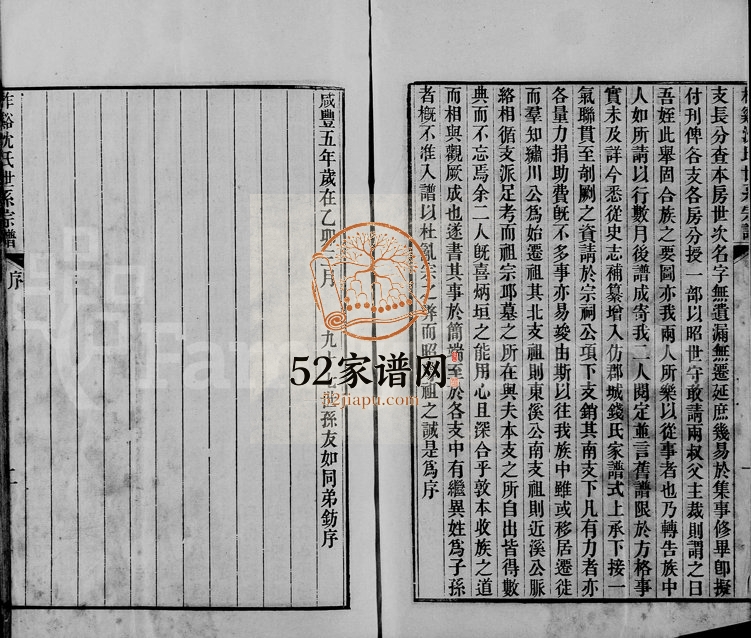 支長分查本房世次名字無遺漏無遷延庶幾易於集事修畢卽擬
付刊俾各支各房分授一部以昭世守敢請兩叔父主裁則謂之曰
吾姪此舉固合族之要圖亦我兩人所樂以從事者也乃轉告族中
人如所請以行數月後譜成寄我二人閱定並言舊譜限於方格事
實未及詳今悉從史志補纂增入仿郡城錢氏家譜式上承下接一
氣聯貫至剞劂之資請於宗祠公項下支銷其南支下凡有力者亦
各量力捐助費旣不多事亦易竣由斯以往我族中雖或移居遷徙
而羣知繡川公爲始遷祖其北支祖則東溪公南支祖則近溪公脈
絡相循支派足考而祖宗邱墓之所在與夫本支之所自出皆得數
典而不忘焉余二人旣喜炳垣之能用心且深合乎敦本收族之道
而相與觀厥成也遂書其事於簡端至於各支中有繼異姓爲子孫
者槪不准入譜以杜亂宗之弊而昭祖之誠是爲序
咸豐五年歲在乙卯三月 九十世孫友如同弟鈁序
谿沈氏世系宗譜
序
52家谱网
52jiapu.com